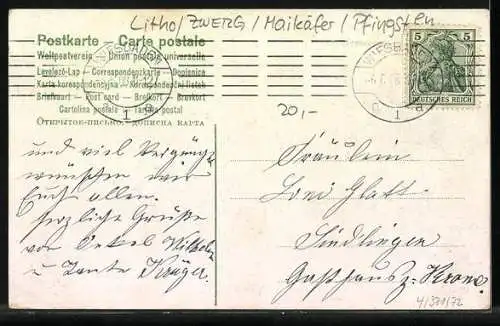 Litho/ZWERG/Maikäfer/Pfingsten
Postkarte – Carte postale
Weltpostverein – Union postale universelle
Levelező-Lap – Correspondenzkarte – Dopisnice
Karta korespondencyjna – Korespondenční lístek
Briefkaart – Post card – Brefkort – Brevkort
Cartolina postale – Tarjeta postal
Открытое письмо. – Дописна карта
WIESBADEN
1
WIESBADEN
1
d
5 5
DEUTSCHES REICH
20,-
und viel Vergnügen
wünschen wir
Euch allen.
herzliche Grüße
von Onkel Wilhelm
u Tante Krüger.
Fräulein
Loni Glatt
Sindlingen
Gasthaus z. Krone
4/371/72